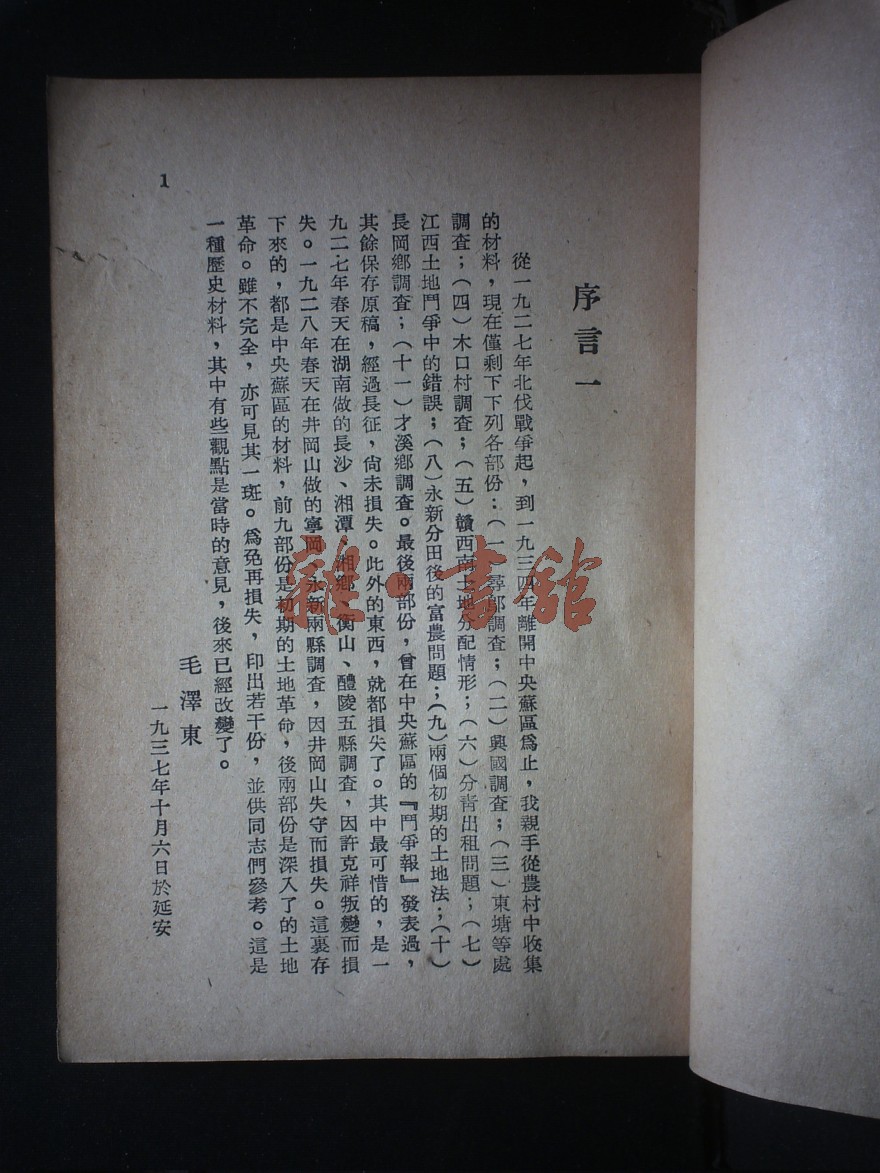 序言一
從一九二七年北伐戰爭起，到一九三四年離開中央蘇區爲止，我親手從農村中收集
的材料，現在僅剩下下列各部份：（一）尋鄔調查；（二）興國調查；（三）東塘等處
調查；（四）木口村調查；（五）贛西南土地分配情形；（六）分青出租問題；（七）
江西土地鬥爭中的錯誤；（八）永新分田後的富農問題；（九）兩個初期的土地法；（十）
長岡鄉調查；（十一）才溪鄉調查。最後兩部份，曾在中央蘇區的『鬥爭報』發表過，
其餘保存原稿，經過長征，尙未損失。此外的東西，就都損失了。其中最可惜的，是一
九二七年春天在湖南做的長沙、湘潭、湘鄉、衡山、醴陵五縣調查，因許克祥叛變而損
失。一九二八年春天在井岡山做的寧岡、永新兩縣調查，因井岡山失守而損失。這裏存
下來的，都是中央蘇區的材料，前九部份是初期的土地革命，後兩部份是深入了的土地
革命。雖不完全，亦可見其一斑。爲免再損失，印出若干份，並供同志們參考。這是
一種歷史材料，其中有些觀點是當時的意見，後來已經改變了。
毛澤東
一九三七年十月六日於延安
1
雜·書館